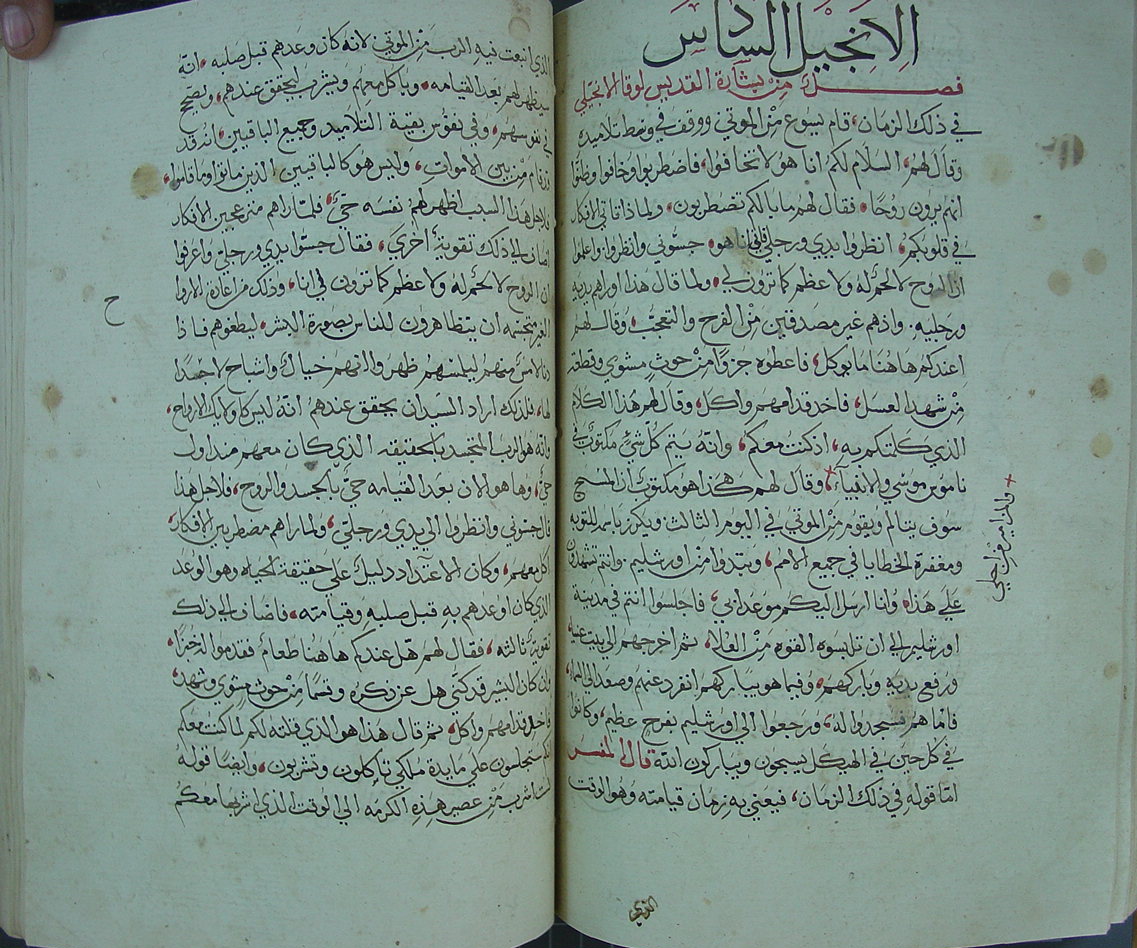 الانجيل السادس
فصل من بشارة القديس لوقا الانجيلي
في ذلك الزمان، قام يسوع من الموتي ووقف في وسط تلاميده
وقال لهم، السلام لكم انا هو لا تخافوا، فاضطربوا وخافوا وظنوا
انهم يرون روحا، فقال لهم ما بالكم تضطربون، ولماذا تاتي الافكار
في قلوبكم، انظروا يدي ورجلي فاني انا هو، جسوني وانظروا واعلموا
ان الروح لا لحم له ولا عظم كما ترون لي، ولما قال هدا اوراهم يديه
ورجليه، واذ هم غير مصدقين من الفرح والتعجب، وقال لهم
اعندكم هاهنا ما يوكل، فاعطوه جزوا من حوت مشوي وقطعة
من شهد العسل، فاخد قدامهم واكل، وقال لهم هذا الكلام
الذي كلمتكم به، اذ كنت معكم، وانه يتم كل شي مكتوب في
ناموس موسي والانبيآء، وقال لهم هكذا هو مكتوب ان المسيح
سوف يتالم ويقوم من الموتي في اليوم الثالث ويكرز باسمه للتوبه
ومغفرة الخطايا في جميع الامم، ويبتدوا من اورشليم، وانتم تشهدون
علي هذا، وانا ارسل اليكم موعد ابي، فاجلسوا انتم في مدينة
اورشليم الي ان تلبسوه القوه من العلا، ثم اخرجهم الي بيت عنيا
ورفع يديه وباركهم، وفيما هو يباركهم انفرد عنهم وصعد الي السما
فاما هم فسجدوا له، ورجعوا الي اورشليم بفرح عظيم، وكانوا
في كل حين في الهيكل يسبحون ويباركون الله قال المفسر
اما قوله في ذلك الزمان، فيعني به زمان قيامته وهو الوقت
الذي
الذي انبعت فيه الرب من الموتي لانه كان وعدهم قبل صلبه، انه
سيظهر لهم بعد القيامه، وياكل معهم ويشرب ليحقق عندهم، ويصح
في نفوسهم، وفي نفوس بقية التلاميد وجميع الباقين، انه قد
قام من بين الاموات، وليس هو كالباقيين الذين ماتوا وما قاموا،
فلاجل هذا السبب اظهر لهم نفسه حي، فلما راهم منزعجين الافكار
اضاف الي ذلك تقوية اخري، فقال جسوا يدي ورجلي واعرفوا
ان الروح لا لحم له ولا عظم كما ترون في انا، وذلك من اعادة الاروا
الغير متجسمه ان يتظاهرون للناس بصورة البشر، ليطغوهم فاذا
دنا لامس منهم ليلمسهم ظهر وانهم خيالات واشباح لا جسدا
لها، فلذلك اراد السيد ان يحقق عندهم انه ليس كاوليك الارواح،
وانه هو الرب المتجسد بالحقيقه الذي كان معهم منذ اول
حي، وها هو الان بعد القيامه حي بالجسد والروح، فلاجل هذا
قال جسوني وانظروا الي يدي ورجلي، ولما راهم مضطربين الافكار
اكل معهم، وكان الاغتداد دليل علي حقيقة الحياه وهو الوعد
الذي كان اوعدهم به قبل صلبه وقيامته، فاضاف الي ذلك
تقوية تالته، فقال لهم هل عندكم هاهنا طعام، فقدموا له خبزا،
من حوت مشوي وشهد،
فاخد قدامهم واكل، ثم قال هذا هو الذي قلته لكم لما كنت معكم
انكم ستجلسون علي مايدة ملكي تاكلون وتشربون، وايضا قوله
لست اشرب من عصير هذه الكرمه الي الوقت الذي اشربها معكم
ح